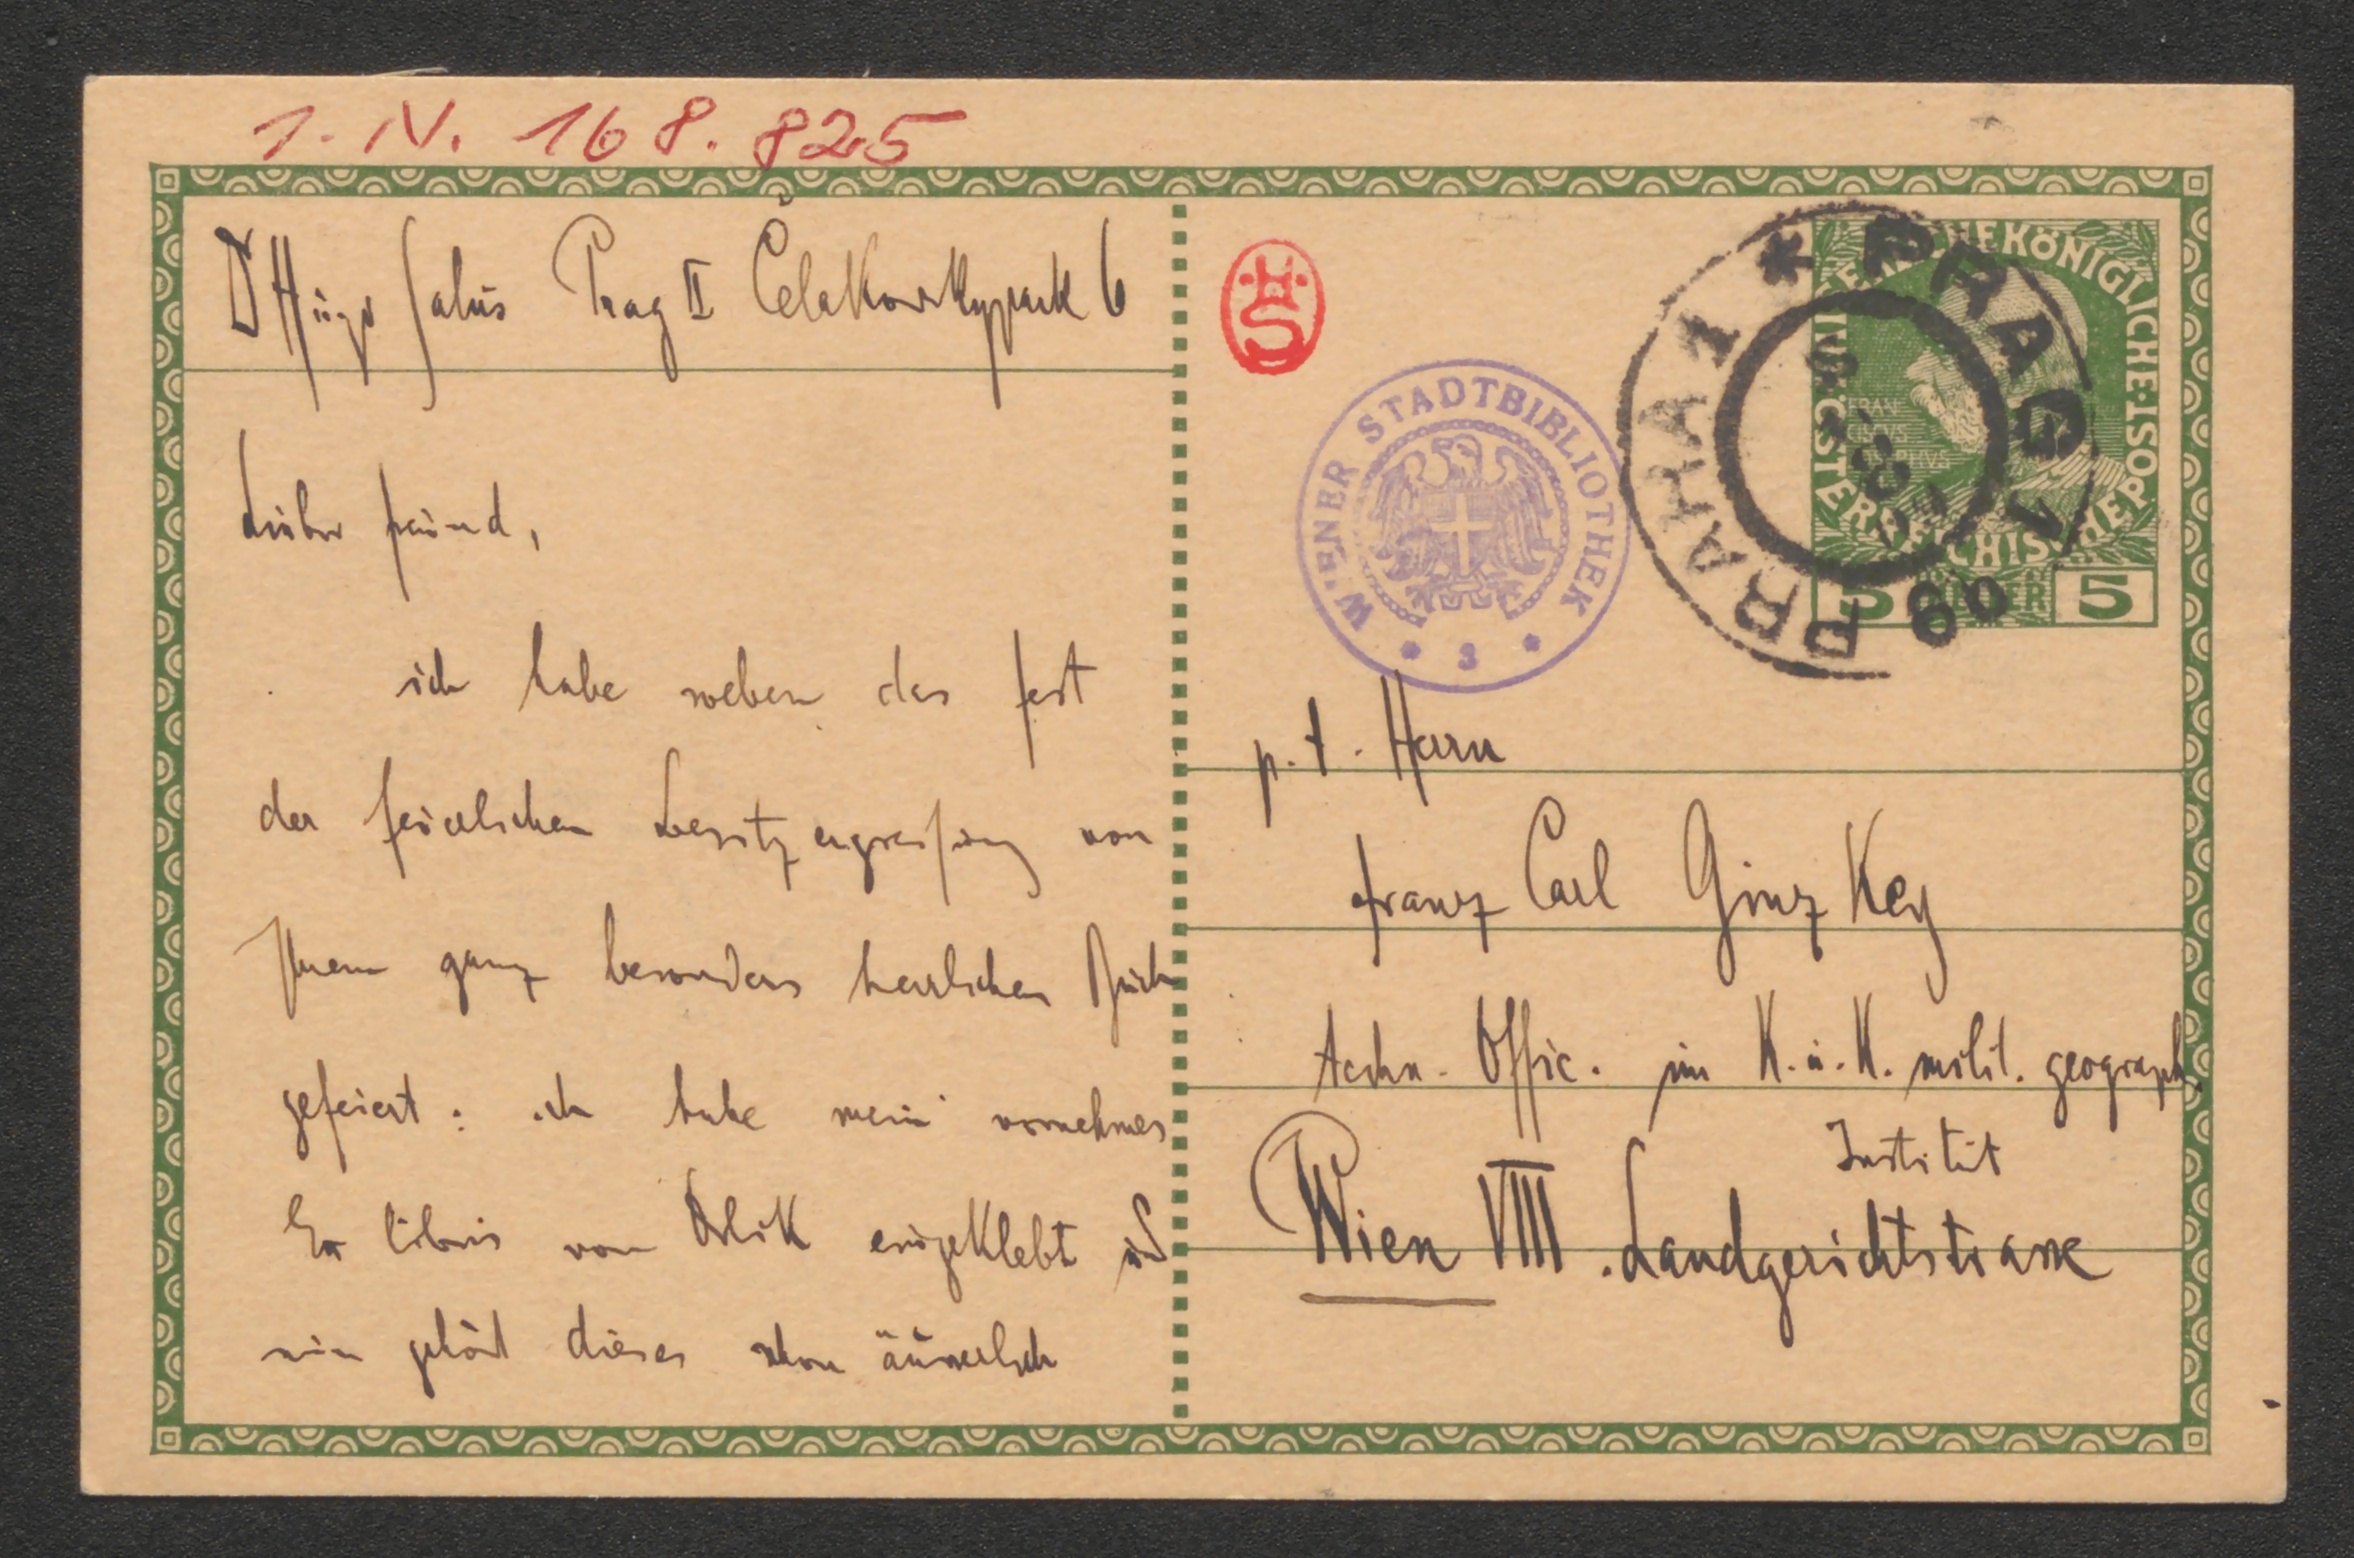 1. N. 168.825
Dr Hugo Salus Prag II Čelakovskypark 6
Lieber Freund,
ich habe soeben das Fest
der feierlichen Besitzergreifung von
Ihrem ganz besonders herrlichen Buch
gefeiert: ich habe mein vornehmes
Ex libris von Orlik eingeklebt und
nun gehört dieses schon äusserlich
HS
WIENER STADTBIBLIOTHEK
PRAG 1
PRAHA 1
ÖSTERREICHISCHE POST
5 HELLER 5
p. t. Herrn
Franz Carl Ginzkey
techn. Offic. im K. u. K. milit. geograph.
Institut
Wien VIII. Landgerichtstrasse